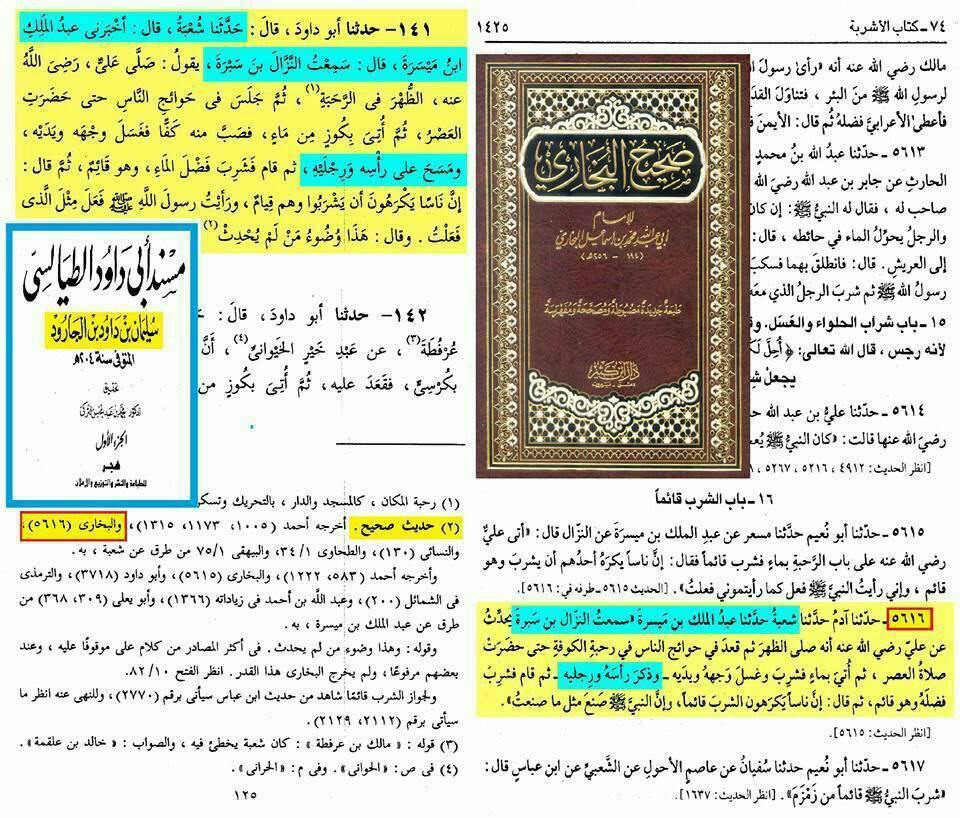 ١٤١- حدثنا أبو داودَ، قالَ: حَدَّثَنا شُعْبَةُ، قال: أَخْبَرنى عبدُ المَلِكِ
ابنُ مَيْسَرَةَ، قال: سَمِعْتُ النَّزَّالَ بنَ سَبْرَةَ، يقولُ: صَلَّى عَلىٌّ، رَضِىَ اللَّهُ
عنه، الظُّهْرَ فى الرَّحَبَةِ(١)، ثُمَّ جَلَسَ فى حَوائِجِ النَّاسِ حتى حَضَرَتِ
العَصْرُ، ثُمَّ أُتِىَ بِكُوزٍ مِن مَاءٍ، فصَبَّ منه كَفًّا فغَسَلَ وجْهَه ويَدَيْه،
ومَسَحَ على رأْسِه ورِجْلَيْه، ثم قام فَشَرِبَ فَضْلَ المَاءِ، وهو قَائِمٌ، ثُمَّ قال:
إنَّ نَاسًا يَكْرَهُونَ أن يَشْرَبُوا وهم قِيَامٌ، ورَأَيْتُ رسولَ اللَّهِ ﷺ فَعَلَ مِثْلَ الَّذى
فَعَلْتُ. وقال: هَذَا وُضُوءُ مَنْ لَمْ يُحْدِثْ(٢)
مسند أبى داود الطيالسى
سليمان بن داود بن الجارود
المتوفى سنة ٢٠٤هـ
تحقيق
الدكتور محمد بن عبد المحسن التركى
الجزء الأول
هجر
للطباعة والنشر والتوزيع والإعلان
١٤٢- حدثنا أبو داودَ، قالَ:
عُرْفُطَةَ(٣)، عن عَبْدِ خَيْرٍ الخَيْوانىِّ(٤)، أَنَّ
بكُرْسِىٍّ، فقَعَدَ عليه، ثُمَّ أُتِىَ بكُوزٍ من
(١) رحبة المكان، كالمسجد والدار، بالتحريك وتسكن
(٢) حديث صحيح. أخرجه أحمد (١٠٠٥، ١١٧٣، ١٣١٥)، والبخارى (٥٦١٦)،
والنسائى (١٣٠)، والطحاوى ١/ ٣٤، والبيهقى ١/ ٧٥ من طرق عن شعبة، به.
وأخرجه أحمد (٥٨٣، ١٢٢٢)، والبخارى (٥٦١٥)، وأبو داود (٣٧١٨)، والترمذى
فى الشمائل (٢٠٠)، وعبد اللَّه بن أحمد فى زياداته (١٣٦٦)، وأبو يعلى (٣٠٩، ٣٦٨) من
طرق عن عبد الملك بن ميسرة، به.
وقوله: وهذا وضوء من لم يحدث. فى أكثر المصادر من كلام على موقوفًا عليه، وعند
بعضهم مرفوعًا، ولم يخرج البخارى هذا القدر. انظر الفتح ١٠/ ٨٢.
ولجواز الشرب قائمًا شاهد من حديث ابن عباس سيأتى برقم (٢٧٧٠)، وللنهى عنه انظر ما
سيأتى برقم (٢١١٢، ٢١٢٩).
(٣) قوله: «مالك بن عرفطة»: كان شعبة يخطئ فيه، والصواب: «خالد بن علقمة».
(٤) فى ص: «الحوانى». وفى م: «الحرانى».
١٢٥
٧٤ ـ كتاب الأشربة
١٤٢٥
مالك رضي الله عنه أنه «رأى رسولَ ا
لرسولِ الله ﷺ منَ البئر، فتناوَلَ القدَ
فأعطى الأعرابيَّ فضلهُ ثم قال: الأيمنَ
٥٦١٣ ـ حدّثنا عبدُ الله بنُ محمدٍ
الحارثِ عن جابر بن عبد الله رضيَ الله
صاحب له، فقال له النبيُّ ﷺ: إن كان
والرجلُ يحوِّلُ الماء في حائطه، قال:
إلى العريشِ. قال: فانطلقَ بهما فسكبَ
رسولُ الله ﷺ ثم شربَ الرجلُ الذي معَه
١٥ ـ باب شراب الحلواء والعَسَل. وقا
لأنه رجس، قال الله تعالى: ﴿أُحِلَّ لَكُ
يجعلْ ش
٥٦١٤ ـ حدّثنا عليُّ بن عبد الله حد
رضيَ الله عنها قالت: «كان النبيُّ ﷺ يُع
[انظر الحديث: ٤٩١٢، ٥٢١٦، ٥٢٦٧،
صحيح البخاري
للإمام
أبي عبد الله محمد بن إسماعيل البخاري
(١٩٤ - ٢٥٦هـ)
طبعة جديدة مضبوطة ومصححة ومفهرسة
دار ابن كثير
دمشق - بيروت
١٦ ـ باب الشرب قائماً
٥٦١٥ ـ حدّثنا أبو نُعيم حدَّثنا مسعر عن عبدِ الملك بن ميسرَةَ عن النزّال قال: «أتى عليٌّ
رضيَ الله عنه على باب الرَّحبةِ بماءٍ فشرب قائماً فقال: إنَّ ناساً يكرَهُ أحدُهم أن يشربَ وهو
قائم، وإني رأيتُ النبيَّ ﷺ فعلَ كما رأيتموني فعلتُ». [الحديث ٥٦١٥ ـ طرفه في: ٥٦١٦].
٥٦١٦ ـ حدّثنا آدمُ حدَّثنا شعبةُ حدَّثنا عبدُ الملك بنِ مَيسرةَ «سمعتُ النزّال بن سَبرةَ يحدِّثُ
عن عليّ رضيَ الله عنه أنه صلى الظهرَ ثم قعدَ في حوائج الناس في رحبةِ الكوفة حتى حضرَتْ
صلاةُ العصر، ثم أُتيَ بماءٍ فشربَ وغسلَ وَجهَهُ ويدَيه ـ وذكرَ رأسَهُ ورِجليه ـ ثم قام فشربَ
فضلَهُ وهو قائم، ثم قال: إنَّ ناساً يَكرَهون الشربَ قائماً، وإنَّ النبيَّ ﷺ صَنعَ مثل ما صنعتُ».
[انظر الحديث: ٥٦١٥].
٥٦١٧ ـ حدّثنا أبو نُعَيم حدثنا سُفيانُ عن عاصم الأحولِ عن الشَّعبيِّ عن ابن عباسٍ قال:
«شربَ النبيُّ ﷺ قائماً من زَمْزَمَ». [انظر الحديث: ١٦٣٧].